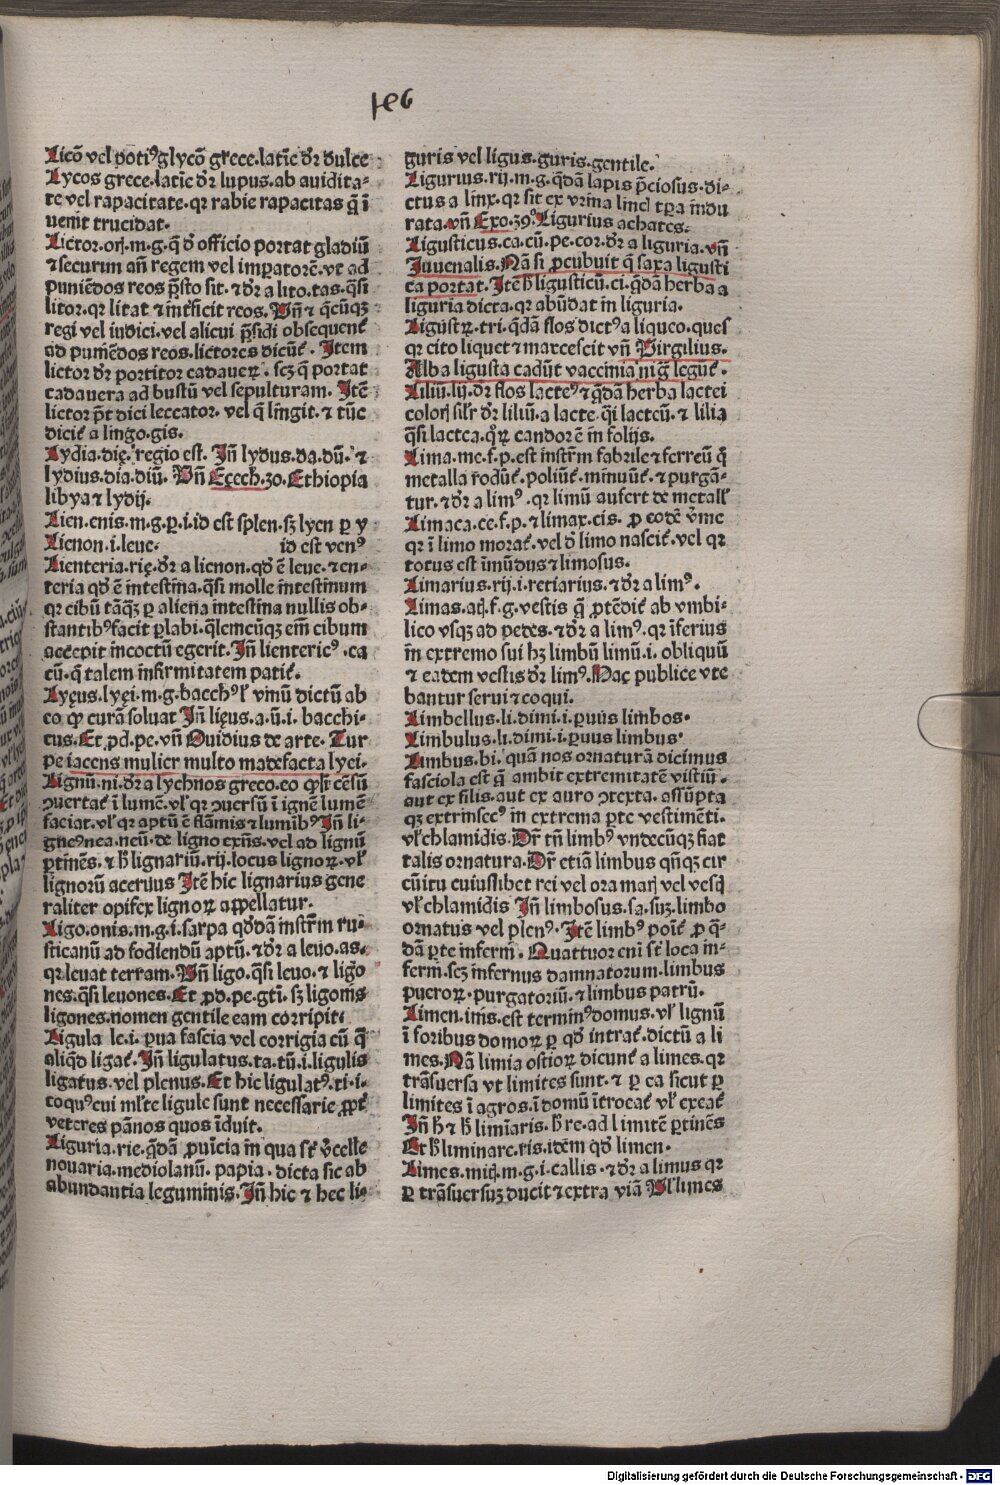 Licō vel potiꝰ glycō grece. latīe dr̄ dulce
Lycos grece. latīe dr̄ lupus. ab auidita-
te vel rapacitate. qr rabie rapacitas q̄ ī
uenit trucidat.
Lictor. orꝭ. m. g. q̄ d̄ officio portat gladiū
⁊ securim añ regem vel imperatorē. vt ad
puniēdos reos p̄sto sit. ⁊ dr̄ a lito. tas. q̄si
litor. qr litat ⁊ intficit reos. Vñ ⁊ q̄cūqꝫ
regi vel iudici. vel alicui p̄sidi obsequent̄
ad puniēdos reos. lictores dicūt̄. Item
lictor dr̄ portitor cadaueꝝ. scꝫ q̄ portat
cadauera ad bustū vel sepulturam. Itē
lictor p̄t dici leccator. vel q̄ lingit. ⁊ tūc
dicit̄ a lingo. gis.
Lydia. dię. regio est. Iñ lydus. da. dū. ⁊
lydius. dia. diū. Vñ Ezech. 30. Ethiopia
libya ⁊ lydij.
Lien. enis. m. g. p. i. id est splen. sꝫ lyen ꝑ y
Lienon. i. leue. id est venꝰ
Lienteria. rię. dr̄ a lienon. qd̓ ē leue. ⁊ en-
teria qd̓ ē intestina. q̄si molle intestinum
qr cibū tāqꝫ ꝑ aliena intestina nullis ob-
stantibꝰ facit ꝑlabi. q̄lemcūqꝫ em̄ cibum
accepit incoctū egerit. Iñ lientericꝰ. ca
cū. q̄ talem infirmitatem patit̄.
Lyęus. lyęi. m. g. bacchꝰ ł vinū dictū ab
eo ꝙ curā soluat Iñ lięus. a. ū. i. bacchi-
cus. Et ꝓd. pe. vñ Ouidius de arte. Tur
pe iacens mulier multo madefacta lyei.
Lignū. ni. dr̄ a lychnos greco. eo ꝙ sit̄ cēsū
ꝯuertat̄ ī lumē. vł qr ꝯuersū ī ignē lumē
faciat. vł qr aptū ē flāmis ⁊ luminibꝰ Iñ li-
gneꝰ nea. neū. de ligno exñs. vel ad lignū
ꝑtinēs. ⁊ h̄ lignariū. rij. locus lignoꝝ. vł
lignorū aceruus Itē hic lignarius gene
raliter opifex lignoꝝ appellatur.
Ligo. onis. m. g. i. sarpa qd̓dā instr̄m ru-
sticanū ad fodiendū aptū. ⁊ dr̄ a leuo. as.
qr leuat terram. Vñ ligo. q̄si leuo. ⁊ ligo
nes. q̄si leuones. Et ꝓd. pe. gti. sꝫ ligonis
ligones. nomen gentile eam corripit.
Ligula le. i. ꝑua fascia vel corrigia cū q̄
aliqd ligat̄. Iñ ligulatus. ta. tū. i. ligulis
ligatus. vel plenus. Et hic ligulatꝰ. ti. i.
coquꝰ cui mlte ligule sunt necessarie ꝓpt̄
veteres pānos quos īduit.
Liguria. rie. q̄dā ꝓuīcia in qua st̄ v̄celle
nouaria. mediolanū. papia. dicta sic ab
abundantia leguminis. Iñ hic ⁊ hec li-
guris vel ligus. guris. gentile.
Ligurius. rij. m. g. q̄dā lapis p̄ciosus. di-
ctus a linx. qr fit ex vrina linci tꝑa indu
rata. vñ Exo. 39. Ligurius achates.
Ligusticus. ca. cū. pe. cor. dr̄ a liguria. vñ
Juuenalis. Nā si ꝓcubuit q̄ saxa ligusti
ca portat. Itē h̄ ligusticū. ci. q̄dā herba a
liguria dicta. qr abūdat in liguria.
Ligustꝝ. tri. q̄dā flos dictꝰ a liqueo. ques
qr cito liquet ⁊ marcescit vñ Virgilius.
Alba ligusta cadūt vaccinia nig̅ legūt̄.
Liliū. lij. dr̄ flos lacteꝰ ⁊ q̄dā herba lactei
colorꝭ silr̄ dr̄ liliū. a lacte. q̄si lacteū. ⁊ lilia
q̄si lactea. q̊ꝝ candor ē in folijs.
Lima. me. f. p. est instr̄m fabrile ⁊ ferreū q̄
metalla rodūt̄. poliūt̄. minuūt̄. ⁊ purgā-
tur. ⁊ dr̄ a limꝰ. qr limū aufert de metall̄
Limaca. ce. f. p. ⁊ limax. cis. ꝓ eodē v̄me
qr ī limo morat̄. vel d̓ limo nascit̄. vel qr
totus est īmūdus ⁊ limosus.
Limarius. rij. i. retiarius. ⁊ dr̄ a limꝰ.
Limas. aꝭ. f. g. vestis q̄ ꝓtēdit̄ ab vmbi-
lico vsqꝫ ad pedes. ⁊ dr̄ a limꝰ. qr īferius
in extremo sui hꝫ limbū limū. i. obliquū
⁊ eadem vestis dr̄ limꝰ. Hac publice vte
bantur serui ⁊ coqui.
Limbellus. li. dimi. i. ꝑuus limbos.
Limbulus. li. dimi. i. ꝑuus limbus.
Limbus. bi. quā nos ornaturā dicimus
fasciola est q̄ ambit extremitatē vistiū.
aut ex filis. aut ex auro ꝯtexta. assūpta
qꝫ extrinsecꝰ in extrema ꝑte vestimēti.
vł chlamidis. Dr̄ tñ limbꝰ vndecūqꝫ fiat
talis ornatura. Dr̄ etiā limbus qñqꝫ cir
cūitu cuiuslibet rei vel ora marꝭ vel vestꝭ
vł chlamidis Iñ limbosus. sa. suꝫ. limbo
ornatus vel plenꝰ. Itē limbꝰ ponit̄ ꝓ q̄-
dā ꝑte inferni. Quattuor eni st̄ loca in-
ferni. scꝫ infernus damnatorum. limbus
pueroꝝ. purgatoriū. ⁊ limbus patrū.
Limen. inis. est terminꝰ domus. vł lignū
ī foribus domoꝝ ꝑ qd̓ intrat̄. dictū a li
mes. Nā limia ostioꝝ dicunt̄ a limes. qr
trāsuersa vt limites sunt. ⁊ ꝑ ea sicut ꝑ
limites ī agros. ī domū ītroeat̄ vł exeat̄
Iñ h̄ ⁊ h̄ liminaris. h̄ re. ad limitē ꝑtinēs
Et h̄ liminare. ris. idem qd̓ limen.
Limes. mitꝭ. m. g. i. callis. ⁊ dr̄ a limus qr
ꝑ trāsuersuꝫ ducit ⁊ extra viā Vł limes
Digitalisierung gefördert durch die Deutsche Forschungsgemeinschaft - DFG